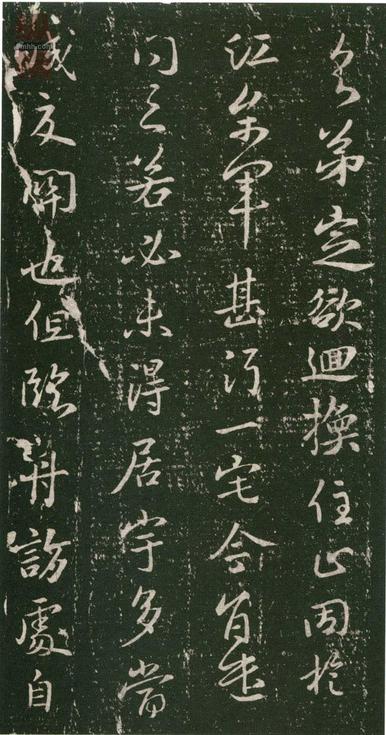 弟定欲迴換住止因於
江參軍甚須一宅今
問之若必未得居宇多當
交關也但臨舟訪處自